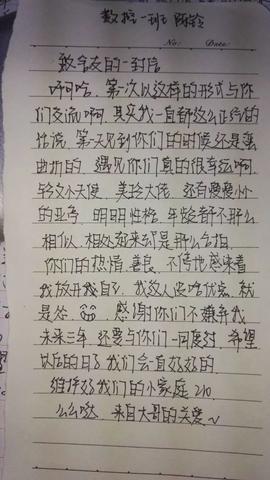 数据一班 陈铃
No: Date:
致舍友的一封信
啊哈哈,第一次以这样的形式与你
们交流啊,其实我一直都这么正经的
性滴,第一天见到你们的时候还是蛮
曲折的,遇见你们真的很幸运啊,
文小天使,美玲大佬,还有傻傻小小
的亚奇,明明性格,年龄都不那么
相似,相处起来却是那么合拍,
你们的热情,善良,不停地感染着
我放开我自己,我这人没啥优点,就
是怂,感谢你们不嫌弃我
未来三年,还要与你们一同度过,希望
以后的日子我们会一直好好的,
维持好我们的小家庭 210.
么么哒,来自大哥的关爱~